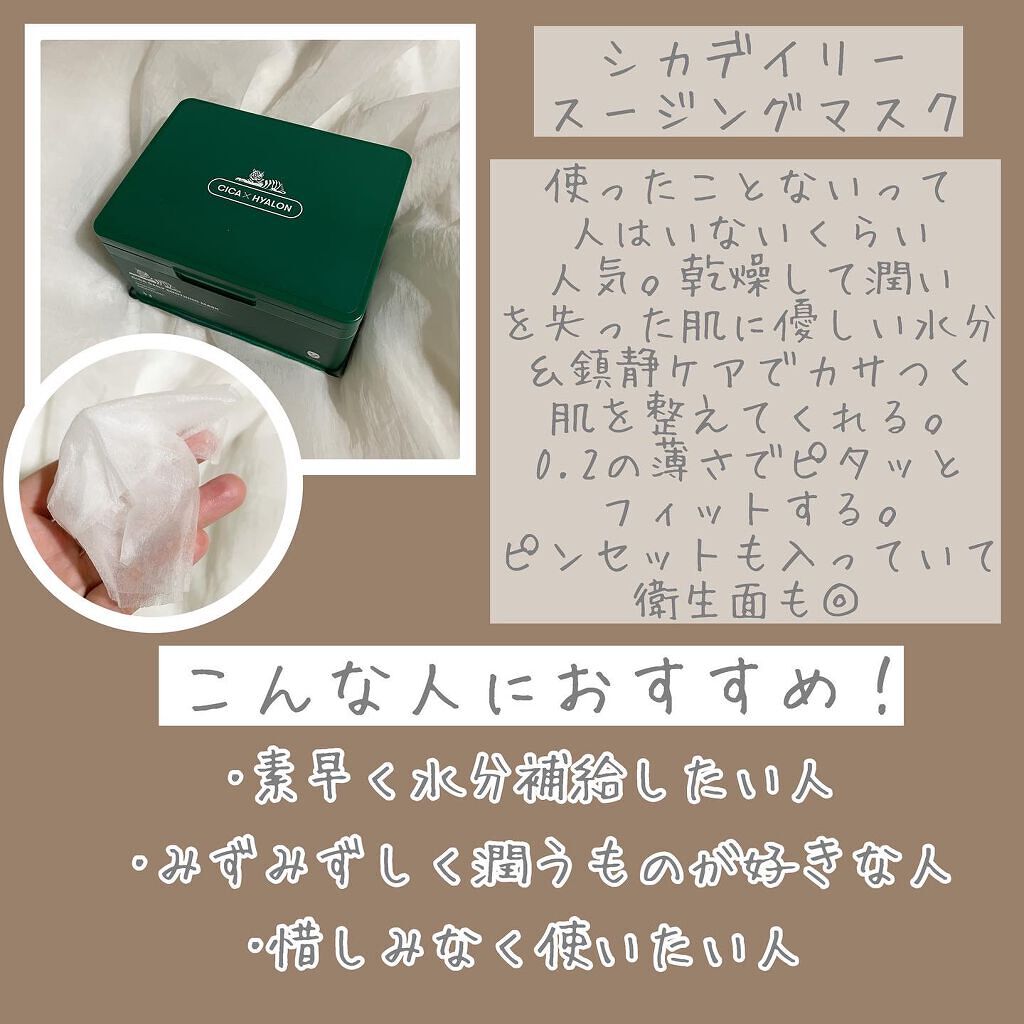 シカデイリー
スージングマスク
CICA×HYALON
使ったことないって
人はいないくらい
人気。乾燥して潤い
を失った肌に優しい水分
&鎮静ケアでカサつく
肌を整えてくれる。
0.2の薄さでピタッと
フィットする。
ピンセットも入っていて
衛生面も◎
こんな人におすすめ!
・素早く水分補給したい人
・みずみずしく潤うものが好きな人
・惜しみなく使いたい人